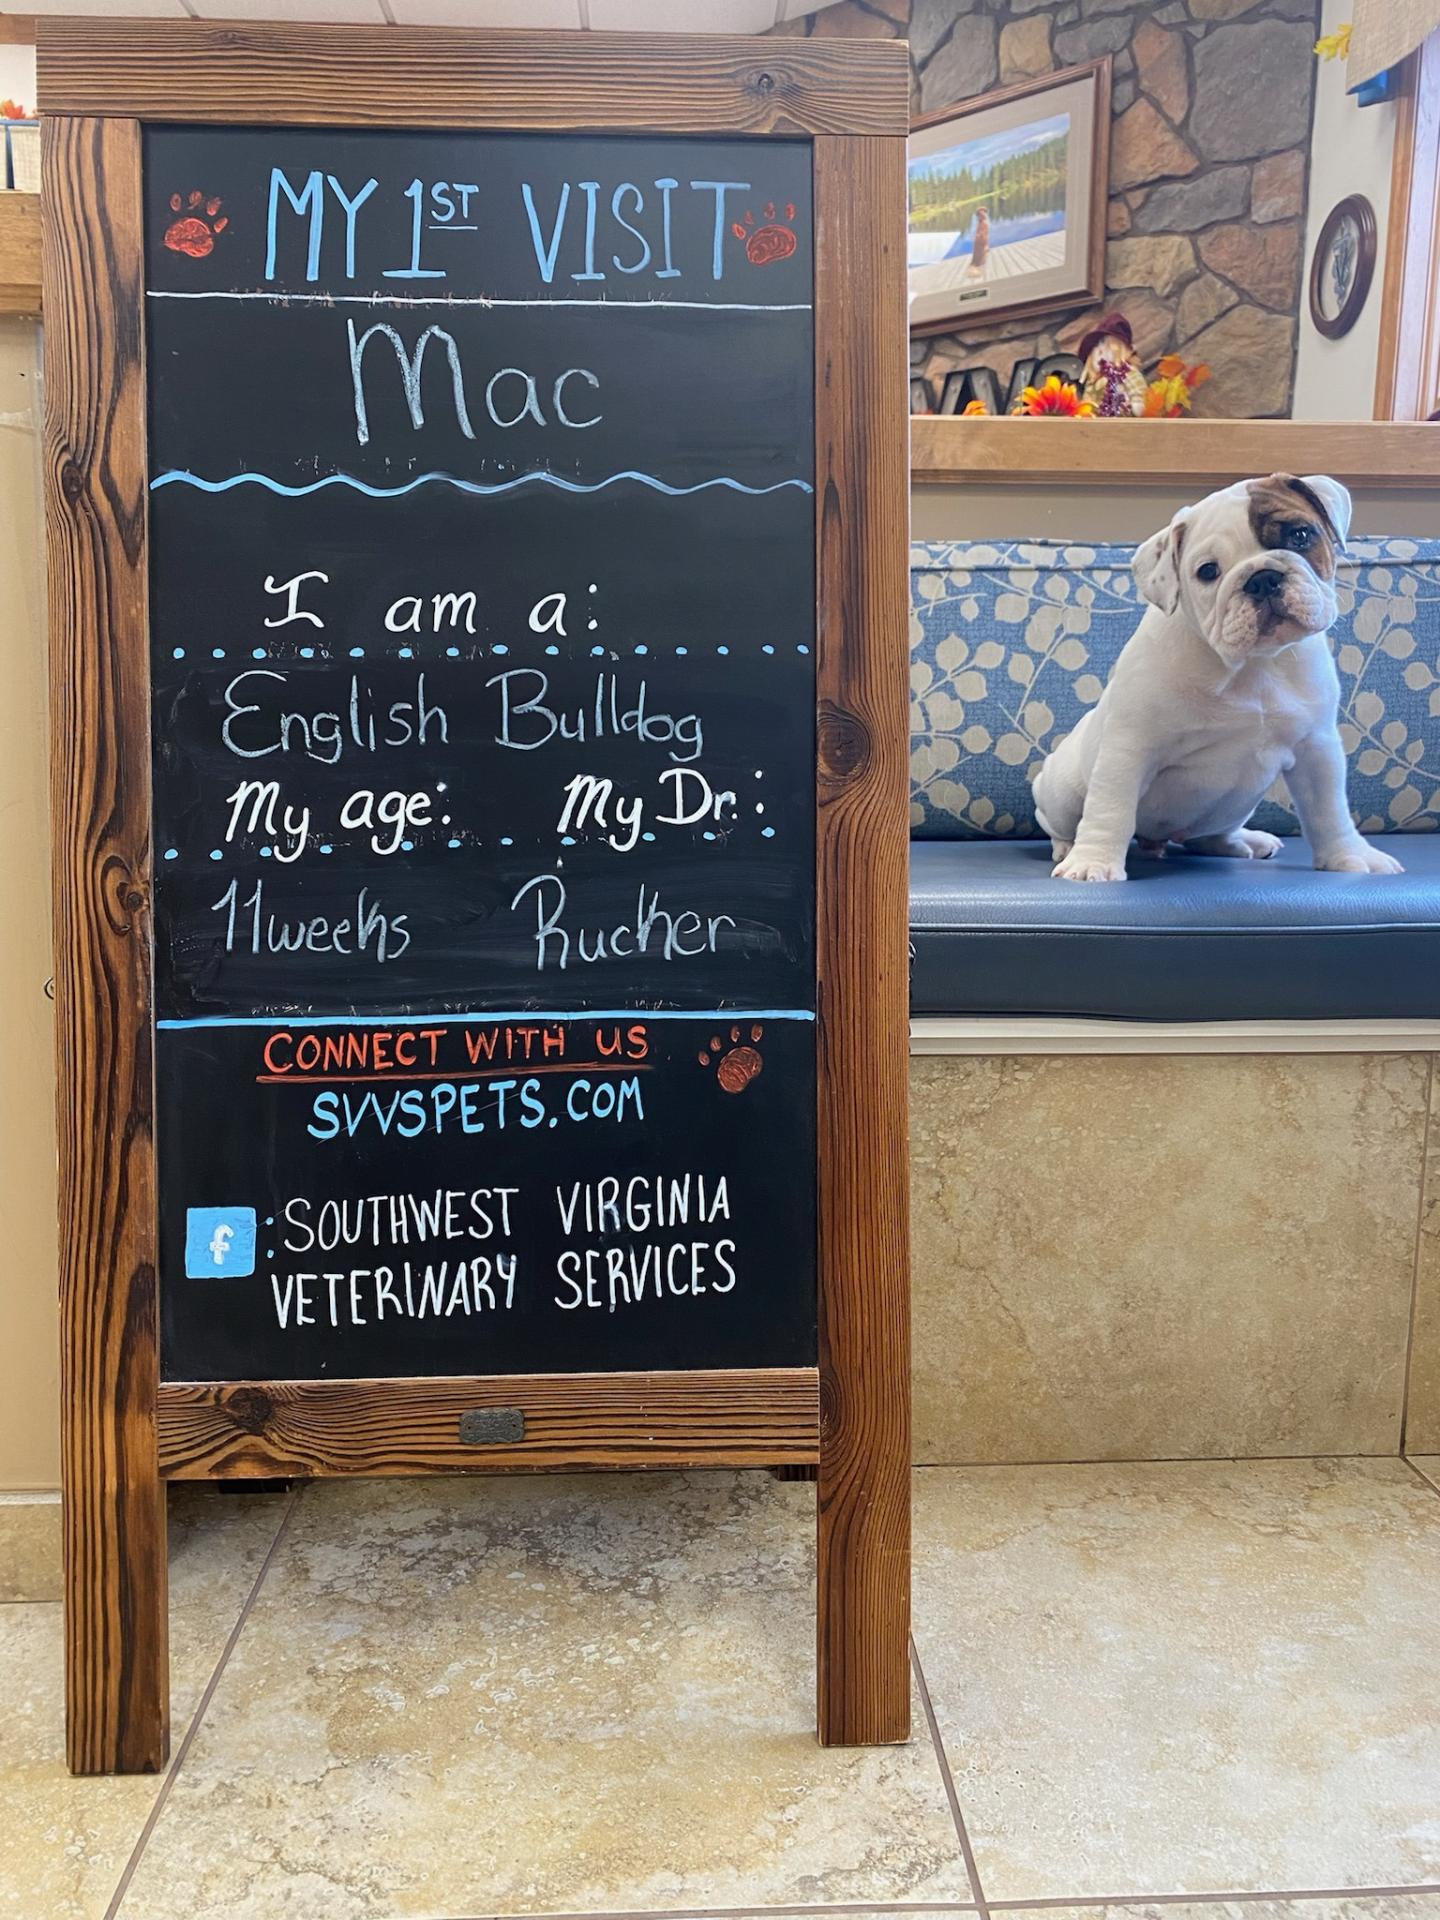 MY 1ST VISIT
Mac
I am a:
English Bulldog
My age: My Dr.:
11weeks Rucker
CONNECT WITH US
SVVSPETS.COM
f : SOUTHWEST VIRGINIA
VETERINARY SERVICES